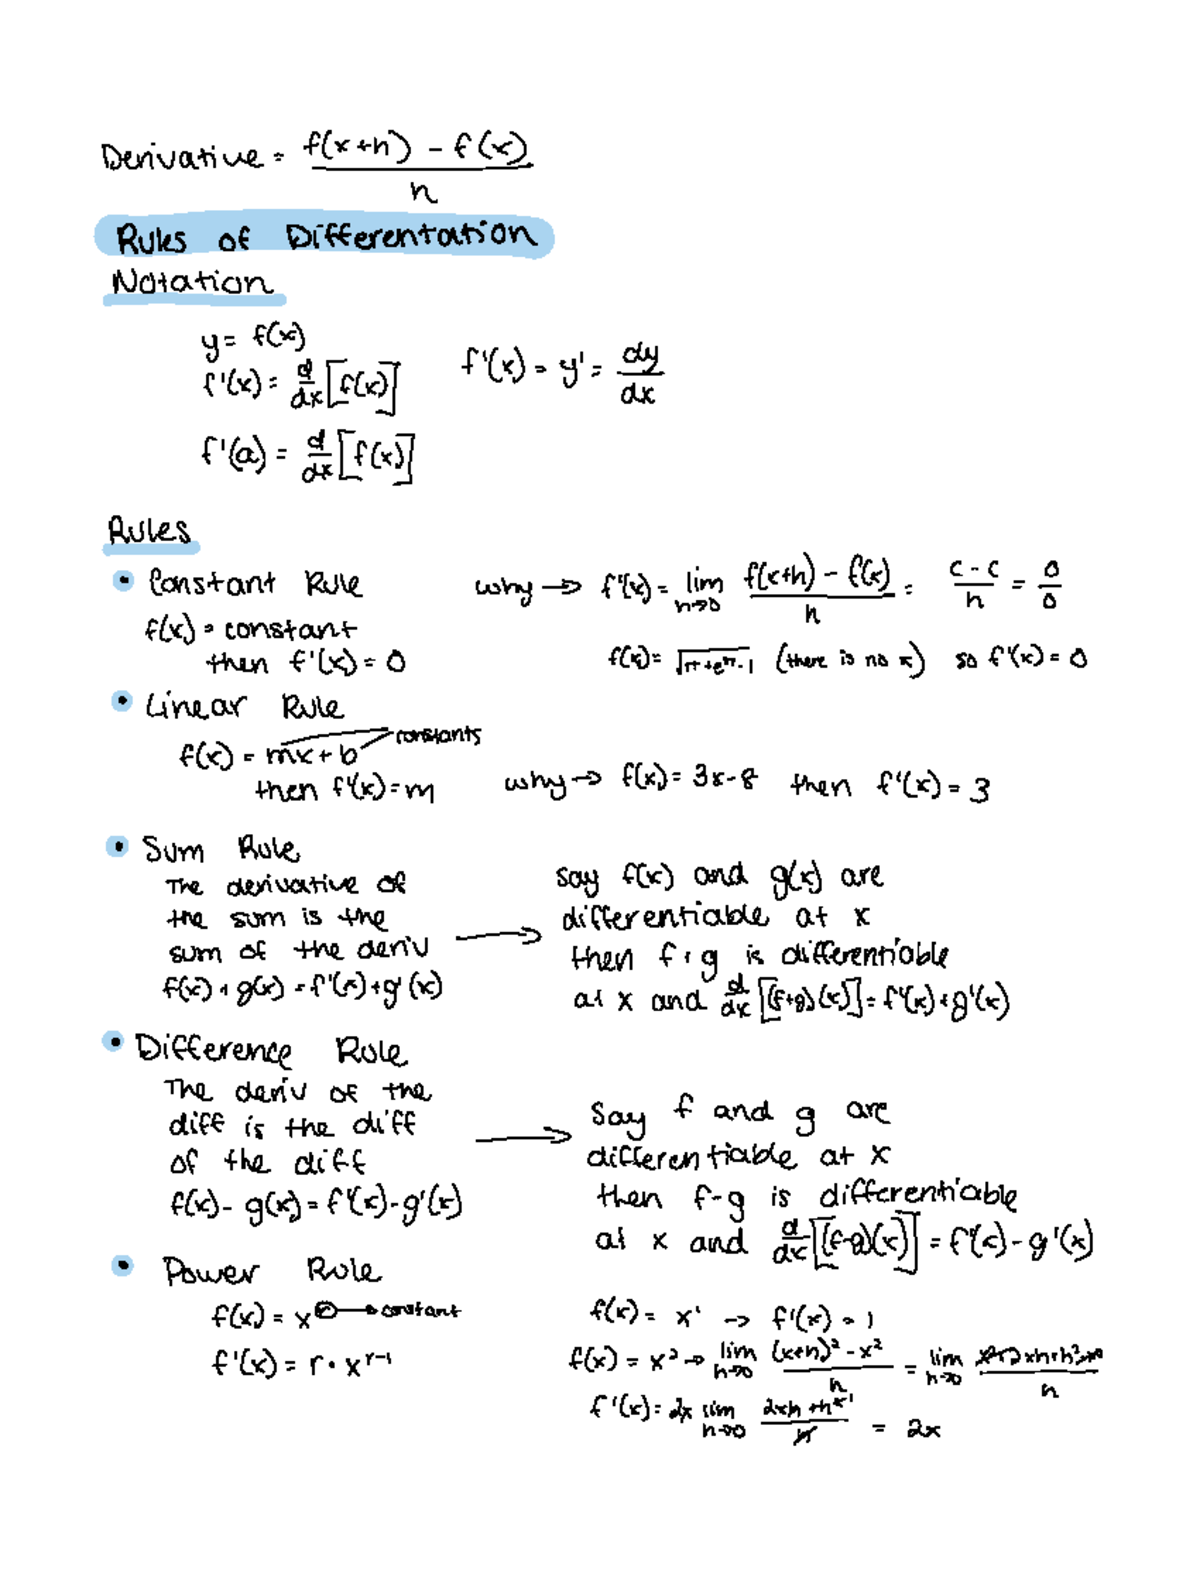 Derivative = f(x+h) - f(x) / h
Rules of Differentation
Notation
y = f(x)
f'(x) = d/dx [f(x)]
f'(x) = y' = dy/dx
f'(a) = d/dx [f(x)]
Rules
• Constant Rule
f(x) = constant
then f'(x) = 0
why → f'(x) = lim h→0 f(x+h) - f(x) / h = c - c / h = 0/0
f(x) = √π+eπ-1 (there is no x) so f'(x) = 0
• Linear Rule
f(x) = mx + b constants
then f'(x) = m
why → f(x) = 3x - 8 then f'(x) = 3
• Sum Rule
The derivative of
the sum is the
sum of the deriv
f(x) + g(x) = f'(x) + g'(x)
say f(x) and g(x) are
differentiable at x
then f + g is differentiable
at x and d/dx [(f+g)(x)] = f'(x) + g'(x)
• Difference Rule
The deriv of the
diff is the diff
of the diff
f(x) - g(x) = f'(x) - g'(x)
Say f and g are
differentiable at x
then f-g is differentiable
at x and d/dx [(f-g)(x)] = f'(x) - g'(x)
• Power Rule
f(x) = x^r → constant
f'(x) = r · x^r-1
f(x) = x¹ → f'(x) = 1
f(x) = x² → lim h→0 (x+h)² - x² / h = lim h→0 x²+2xh+h²-x² / h
f'(x) = 2x lim h→0 2xh + h² / h = 2x